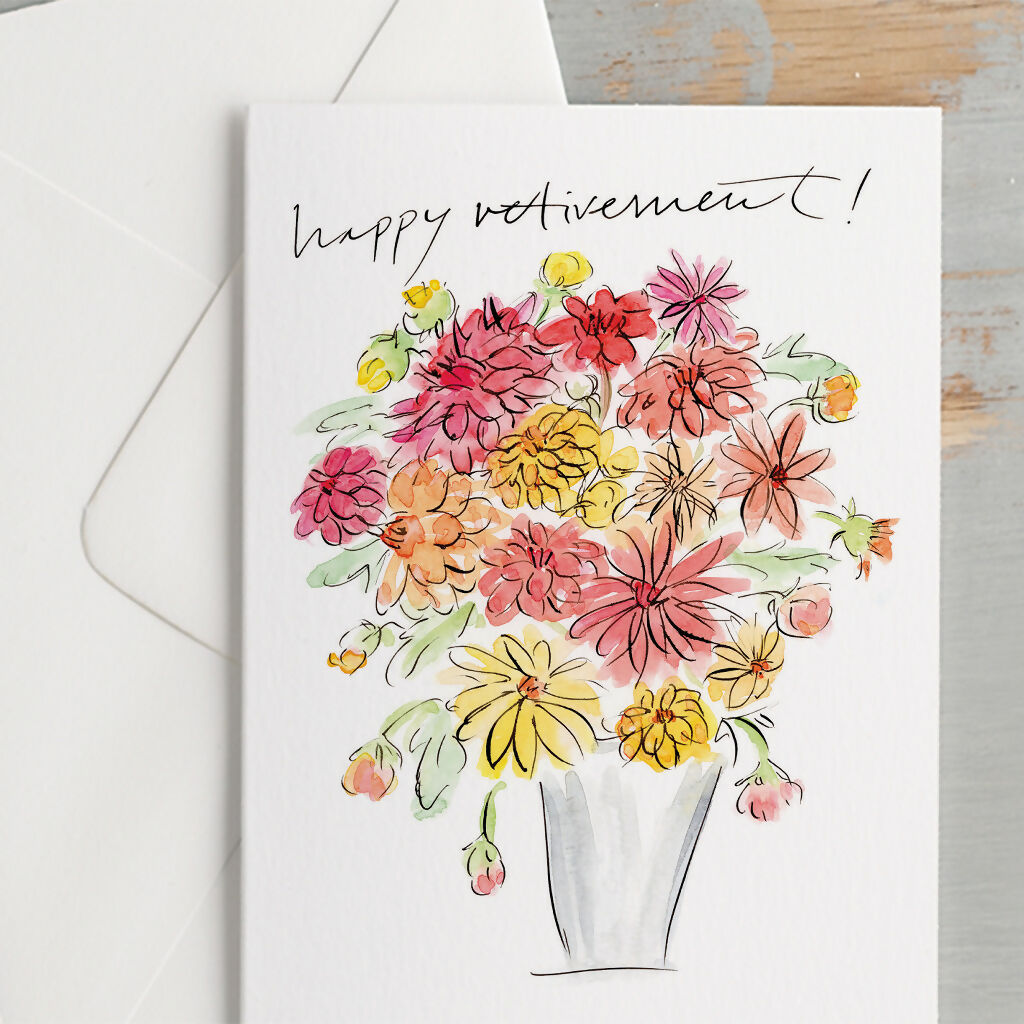 happy retirement!